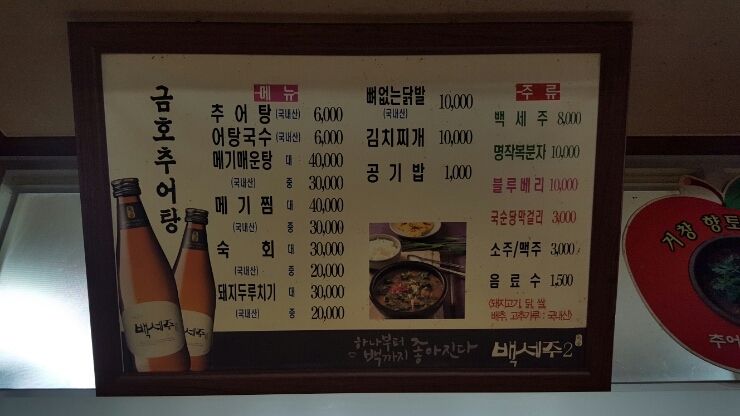 금호추어탕
메뉴
추어탕 (국내산) 6,000
어탕국수 (국내산) 6,000
메기매운탕 대 40,000
(국내산) 중 30,000
메기찜 대 40,000
(국내산) 중 30,000
숙회 대 30,000
(국내산) 중 20,000
돼지두루치기 대 30,000
(국내산) 중 20,000
뼈없는닭발 10,000
(국내산)
김치찌개 10,000
공기밥 1,000
주류
백세주 8,000
명작복분자 10,000
블루베리 10,000
국순당막걸리 3,000
소주/맥주 3,000
음료수 1,500
(돼지고기, 닭, 쌀,
배추, 고추가루 : 국내산)
백세주
백세주
하나부터
백까지 좋아진다
백세주2
거창 향토
추어